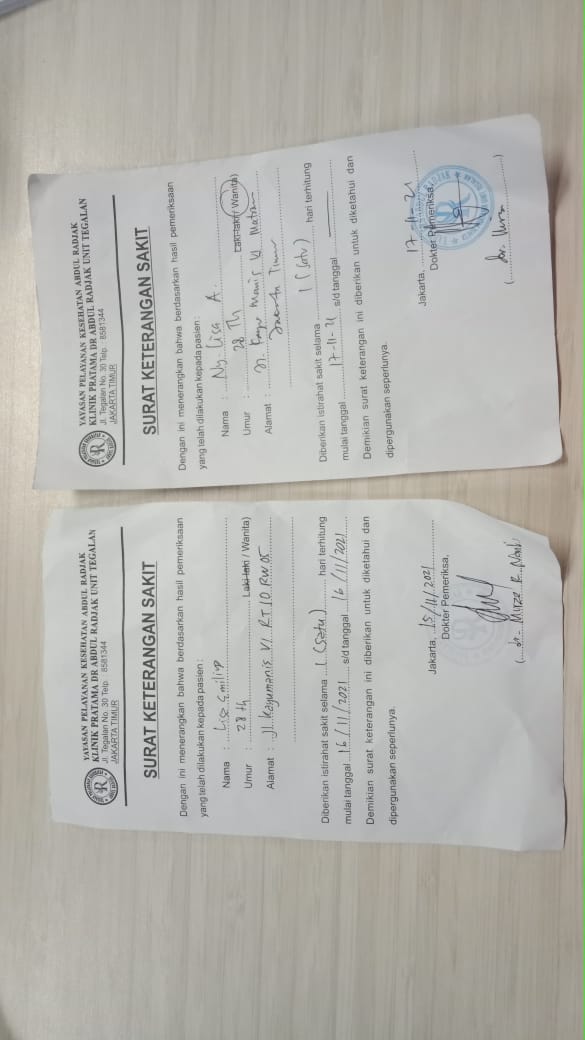 YAYASAN PELAYANAN KESEHATAN ABDUL RADJAK
KLINIK PRATAMA DR ABDUL RADJAK UNIT TEGALAN
Jl. Tegalan No. 30 Telp. 8581344
JAKARTA TIMUR
SURAT KETERANGAN SAKIT
Dengan ini menerangkan bahwa berdasarkan hasil pemeriksaan
yang telah dilakukan kepada pasien :
Nama : Ny. Lisa A.
Umur : 28 Th Laki-laki / Wanita)
Alamat : Jl. Kayu Manis VI Matraman
Jakarta Timur
Diberikan istirahat sakit selama 1 (satu) hari terhitung
mulai tanggal 17-11-21 s/d tanggal
Demikian surat keterangan ini diberikan untuk diketahui dan
dipergunakan seperlunya.
Jakarta, 17-11-21
Dokter Pemeriksa,
(dr.)
YAYASAN PELAYANAN KESEHATAN ABDUL RADJAK
KLINIK PRATAMA DR ABDUL RADJAK UNIT TEGALAN
Jl. Tegalan No. 30 Telp. 8581344
JAKARTA TIMUR
SURAT KETERANGAN SAKIT
Dengan ini menerangkan bahwa berdasarkan hasil pemeriksaan
yang telah dilakukan kepada pasien :
Nama : Lisa
Umur : 28 th Laki-laki / Wanita)
Alamat : Jl. Kayumanis VI RT 10 RW 05
Diberikan istirahat sakit selama 1 (satu) hari terhitung
mulai tanggal 16/11/2021 s/d tanggal 16/11/2021
Demikian surat keterangan ini diberikan untuk diketahui dan
dipergunakan seperlunya.
Jakarta, 15/11/2021
Dokter Pemeriksa,
(dr. Mirza R.)